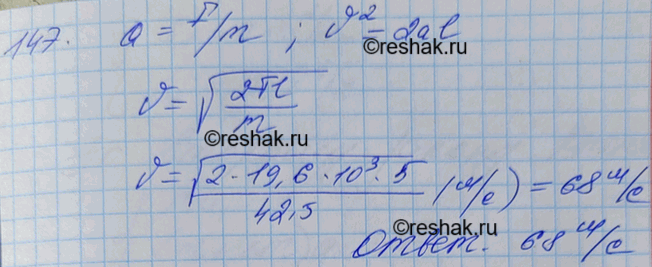 147. a = F/m ; v² = 2al
©reshak.ru
v = √(2Fl/m)
©reshak.ru
v = √(2·19,6·10³·5/42,5) (м/с) = 68 м/с
©reshak.ru
Ответ. 68 м/с